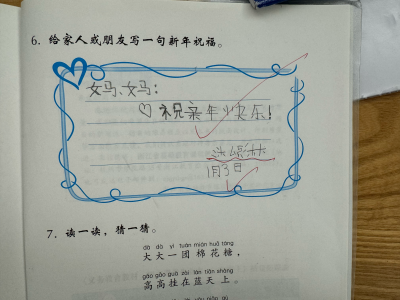 6. 给家人或朋友写一句新年祝福。
妈妈：
♡祝亲年快乐！
1月3日
7. 读一读，猜一猜。
dà dà yì tuán mián huā táng
大大一团棉花糖，
gāo gāo guà zài lán tiān shàng
高高挂在蓝天上。